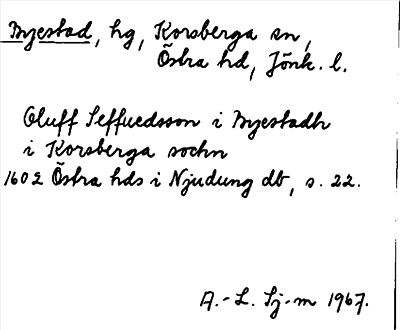 Byestad, hg, Korsberga sn,
Östra hd, Jönk. l.
Oluff Seffuedsson i Byestadh
i Korsberga sochn
1602 Östra hds i Njudung db, s. 22.
A.-L. Sj-m 1967.